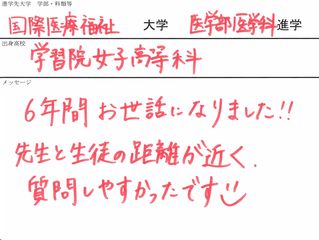 進学先大学 学部・科類等
国際医療福祉 大学 医学部医学科 進学
出身高校
学習院女子高等科
メッセージ
6年間お世話になりました!!
先生と生徒の距離が近く、
質問しやすかったです